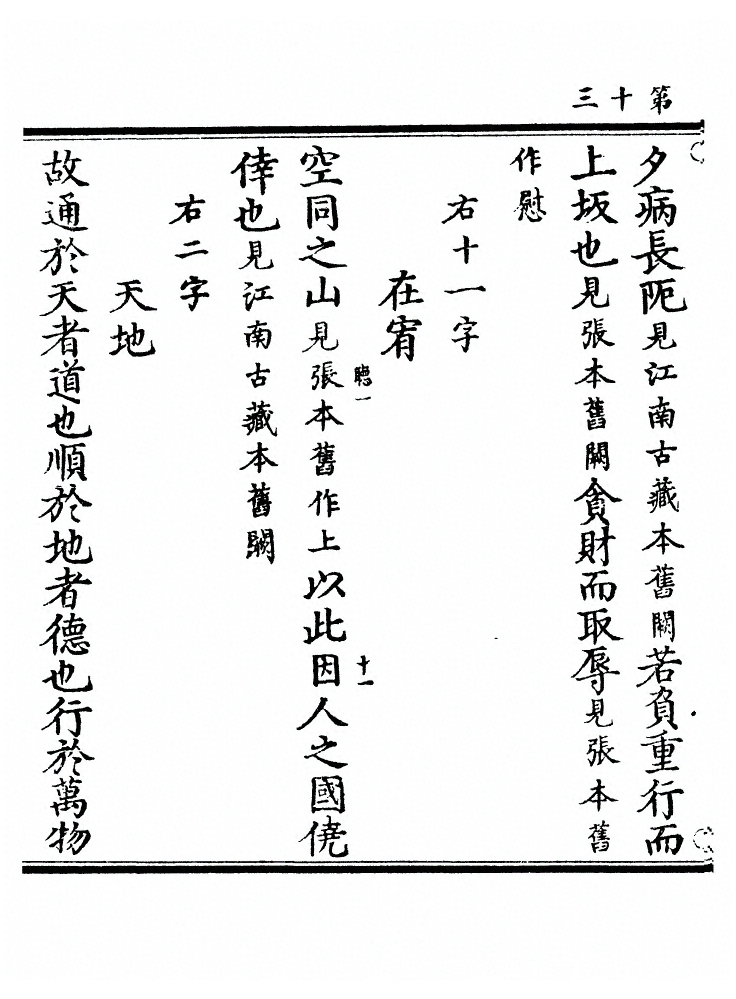 第十三
夕病長阨見江南古藏本舊闕若負重行而
上坂也見張本舊闕貪財而取辱見張本舊
作慰
右十一字
在宥
聽一
十一
空同之山見張本舊作上以此因人之國僥
倖也見江南古藏本舊闕
右二字
天地
故通於天者道也順於地者德也行於萬物